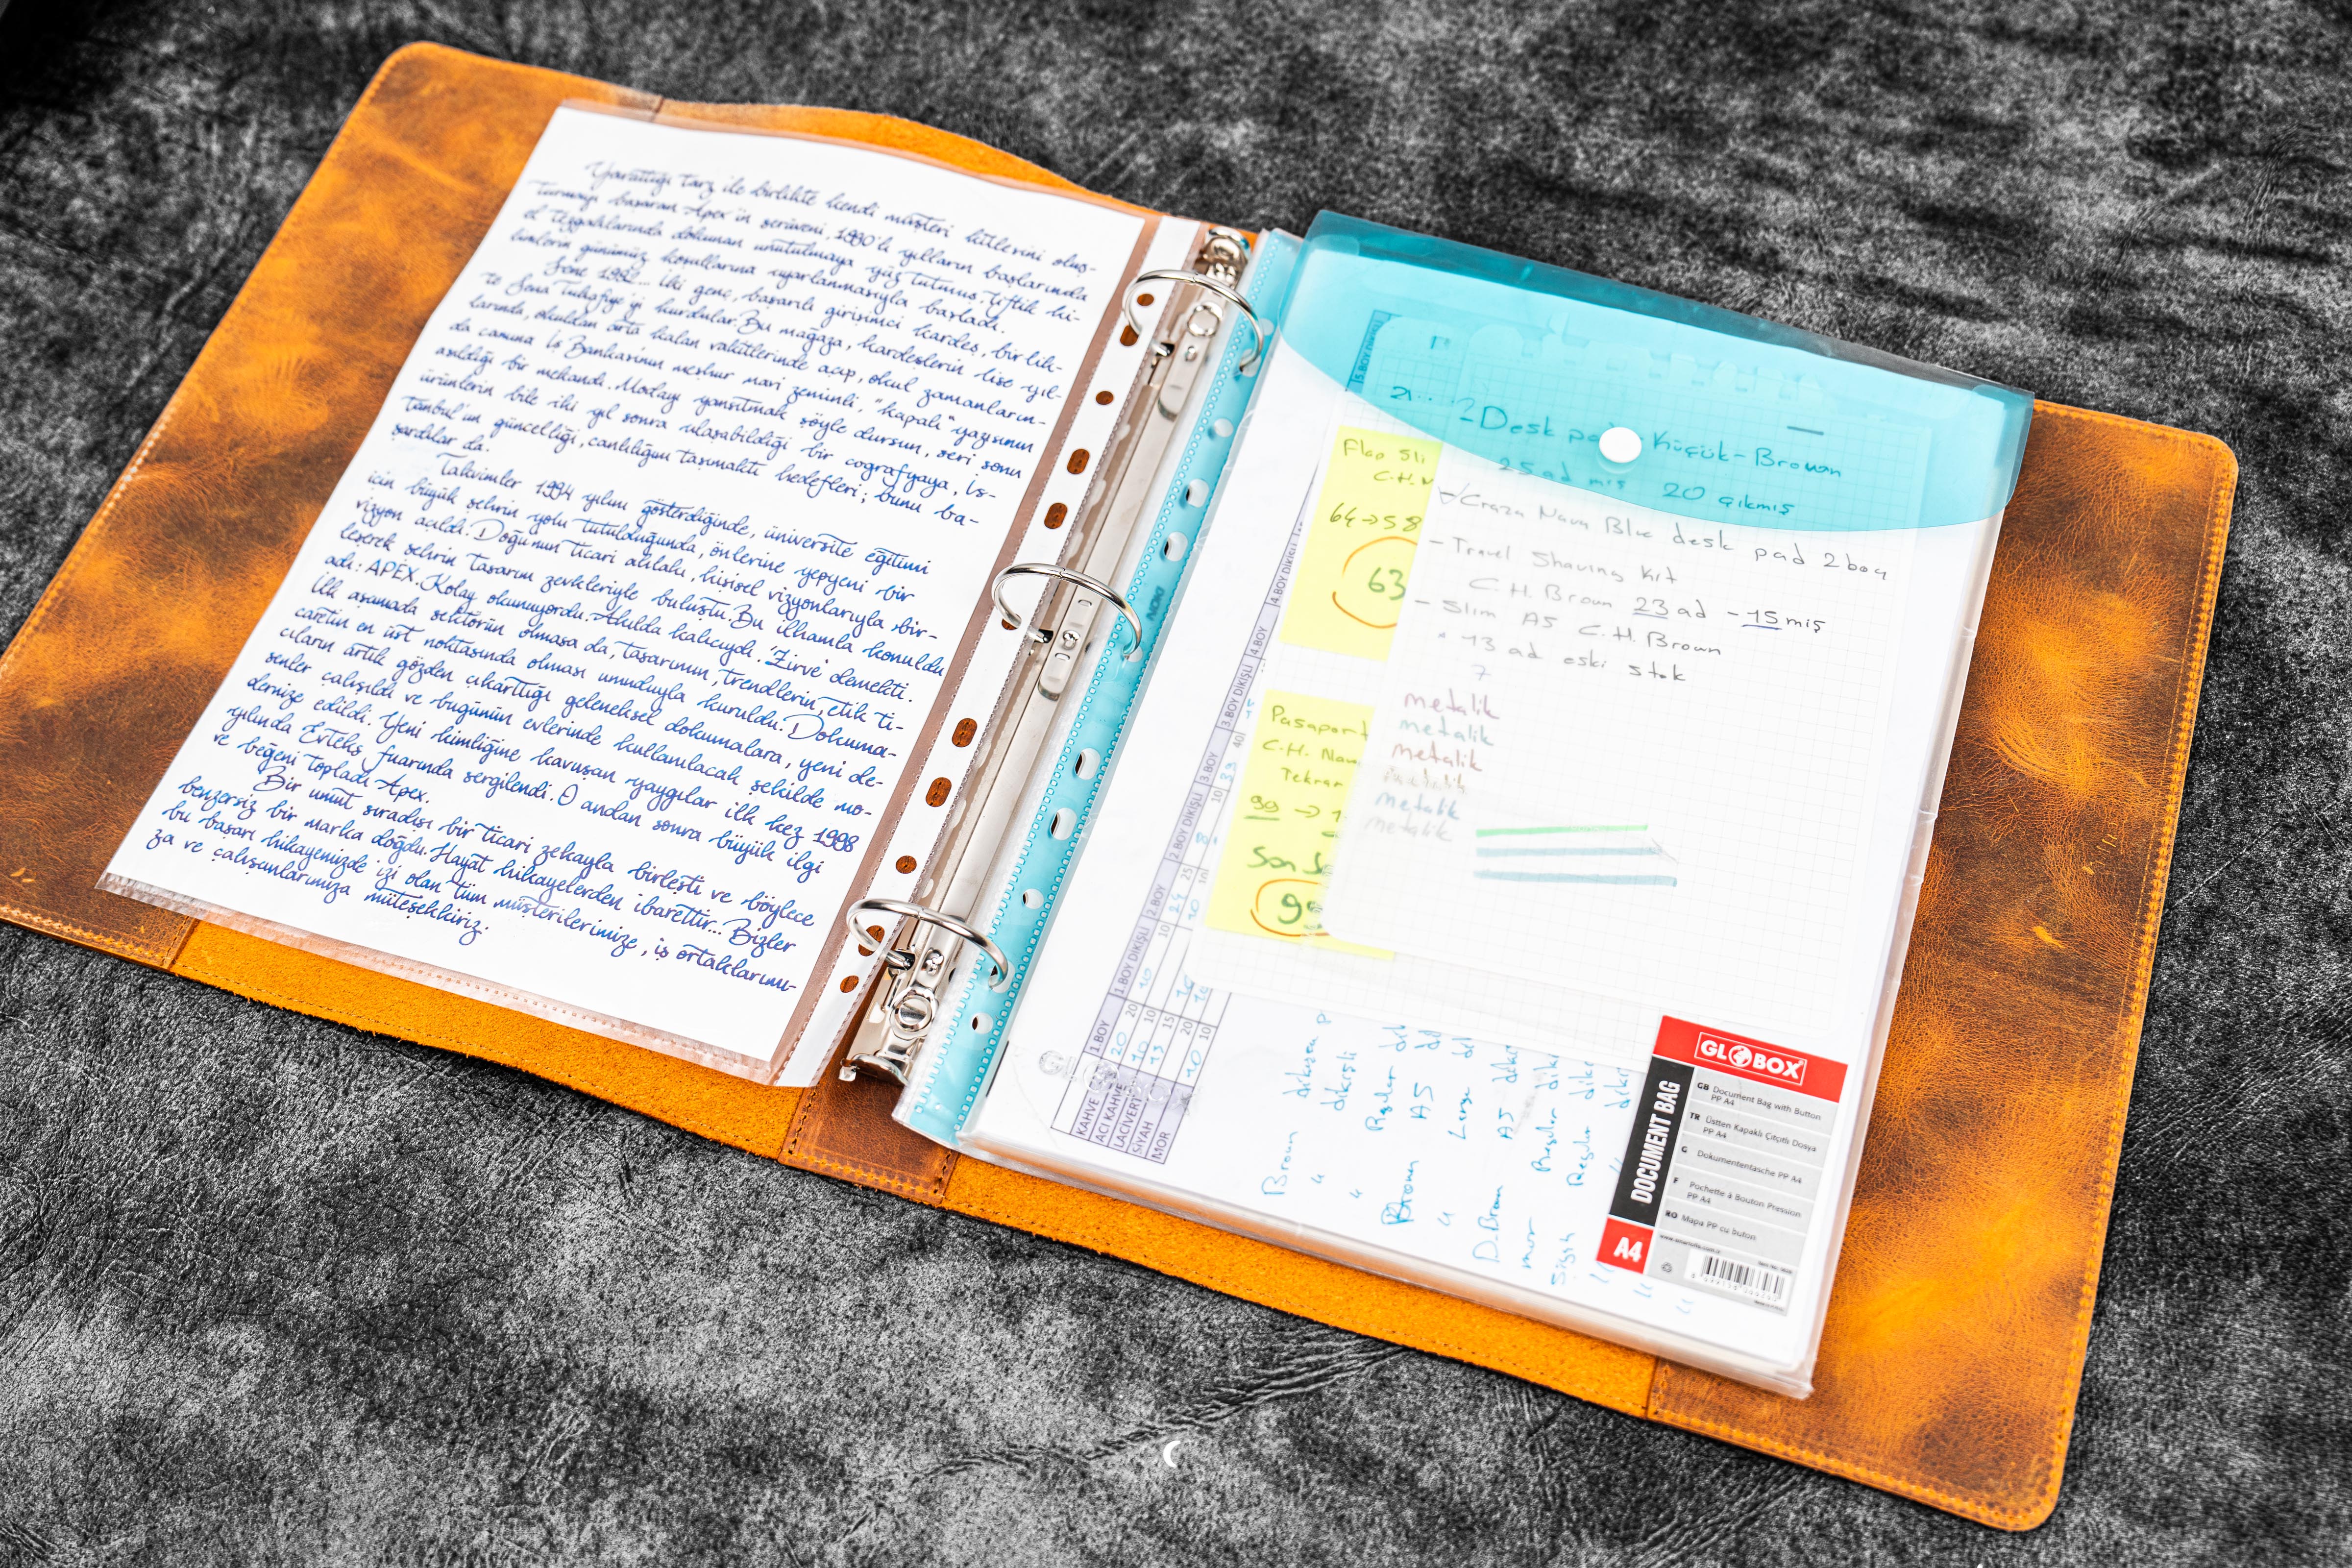 Yarattığı tarz ile birlikte kendi müşteri kitlerini oluş-
turmayı başaran Apex'in serüveni, 1990'lı yılların başlarında
el tezgahlarında dokunan unutulmaya yüz tutmuş çiftlik ki-
limlerin günümüz koşullarına uyarlanmasıyla başladı.
Sene 1992... İki genç, başarılı girişimci kardeş, birlik-
te Sena Tuhafiye'yi kurdular. Bu mağaza, kardeşlerin lise yıl-
larında, okuldan arta kalan vakitlerinde açıp, okul zamanların-
da camına İş Bankasının meşhur mavi zeminli, "kapalı" yazısının
asıldığı bir mekandı. Modayı yansıtmak şöyle dursun, seri sonu
ürünlerin bile iki yıl sonra ulaşabildiği bir coğrafyaya, İs-
tanbul'un güncelliği, canlılığını taşımaktı hedefleri; bunu ba-
şardılar da.
Takvimler 1994 yılını gösterdiğinde, üniversite eğitimi
için büyük şehrin yolu tutulduğunda, önlerine yepyeni bir
vizyon açıldı. Doğunun ticari ahlakı, kişisel vizyonlarıyla bir-
leşerek şehrin tasarım zevkleriyle buluştu. Bu ilhamla konuldu
adı: APEX. Kolay okunuyordu. Akılda kalıcıydı. 'Zirve' demekti.
İlk aşamada sektörün olmasa da, tasarımın, trendlerin, etik ti-
caretin en üst noktasında olması umuduyla kuruldu. Dokuma-
cıların artık gözden çıkarttığı geleneksel dokumalara, yeni de-
senler çalışıldı ve bugünün evlerinde kullanılacak şekilde mo-
dernize edildi. Yeni kimliğine kavuşan yaygılar ilk kez 1998
yılında Evteks fuarında sergilendi. O andan sonra büyük ilgi
ve beğeni topladı Apex.
Bir umut sıradışı bir ticari zekayla birleşti ve böylece
benzersiz bir marka doğdu. Hayat hikayelerden ibarettir... Bizler
bu başarı hikayemizde izi olan tüm müşterilerimize, iş ortaklarımı-
za ve çalışanlarımıza müteşekkiriz.
Desk Küçük-Brown
25 ad 20 çıkmış
Craza Nava Blue desk pad 2 boy
- Travel Shaving Kit
C.H. Broun 23 ad - 15 miş
- Slim A5 C.H. Brown
13 ad eski stok
7
metalik
metalik
metalik
metalik
metalik
metalik
Flap
C.H.
64→58
63
Pasaport
C.H. Nava
Tekrar
99 →
Son
5.BOY DİKİŞLİ
4.BOY DİKİŞLİ
4.BOY
3.BOY DİKİŞLİ
3.BOY
2.BOY DİKİŞLİ
2.BOY
1.BOY DİKİŞLİ
1.BOY
KAHVE
ACI KAHVE
LACİVERT
SİYAH
MOR
Broun
dikişli
Brown A5
Regler
D.Brown A5
Large
mor Regler
Siyah Regler
NOKI
GLOBOX
DOCUMENT BAG
A4
GB Document Bag with Button
PP A4
TR Üstten Kapaklı Çıtçıtlı Dosya
PP A4
G Dokumententasche PP A4
F Pochette à Bouton Pression
PP A4
RO Mapa PP cu buton